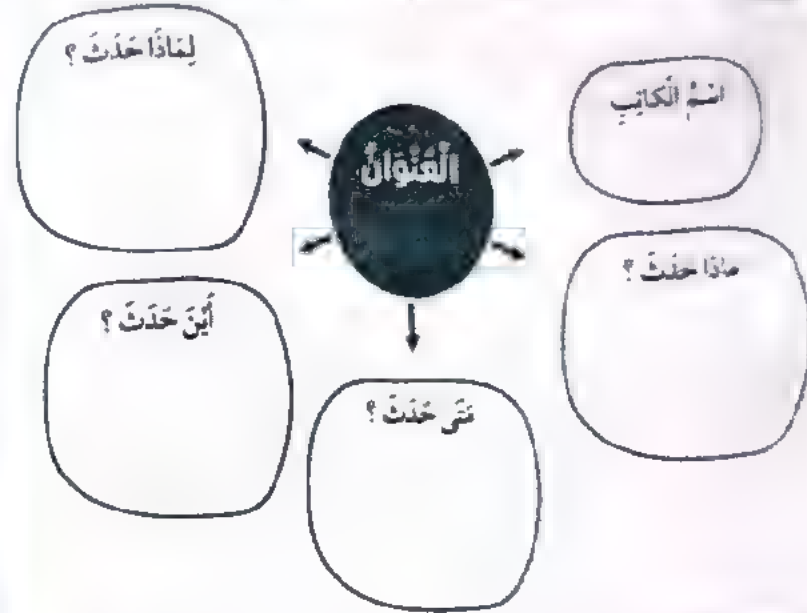 الْعُنْوَانُ
اسْمُ الْكَاتِبِ
مَاذَا حَدَثَ ؟
مَتَى حَدَثَ ؟
أَيْنَ حَدَثَ ؟
لِمَاذَا حَدَثَ ؟